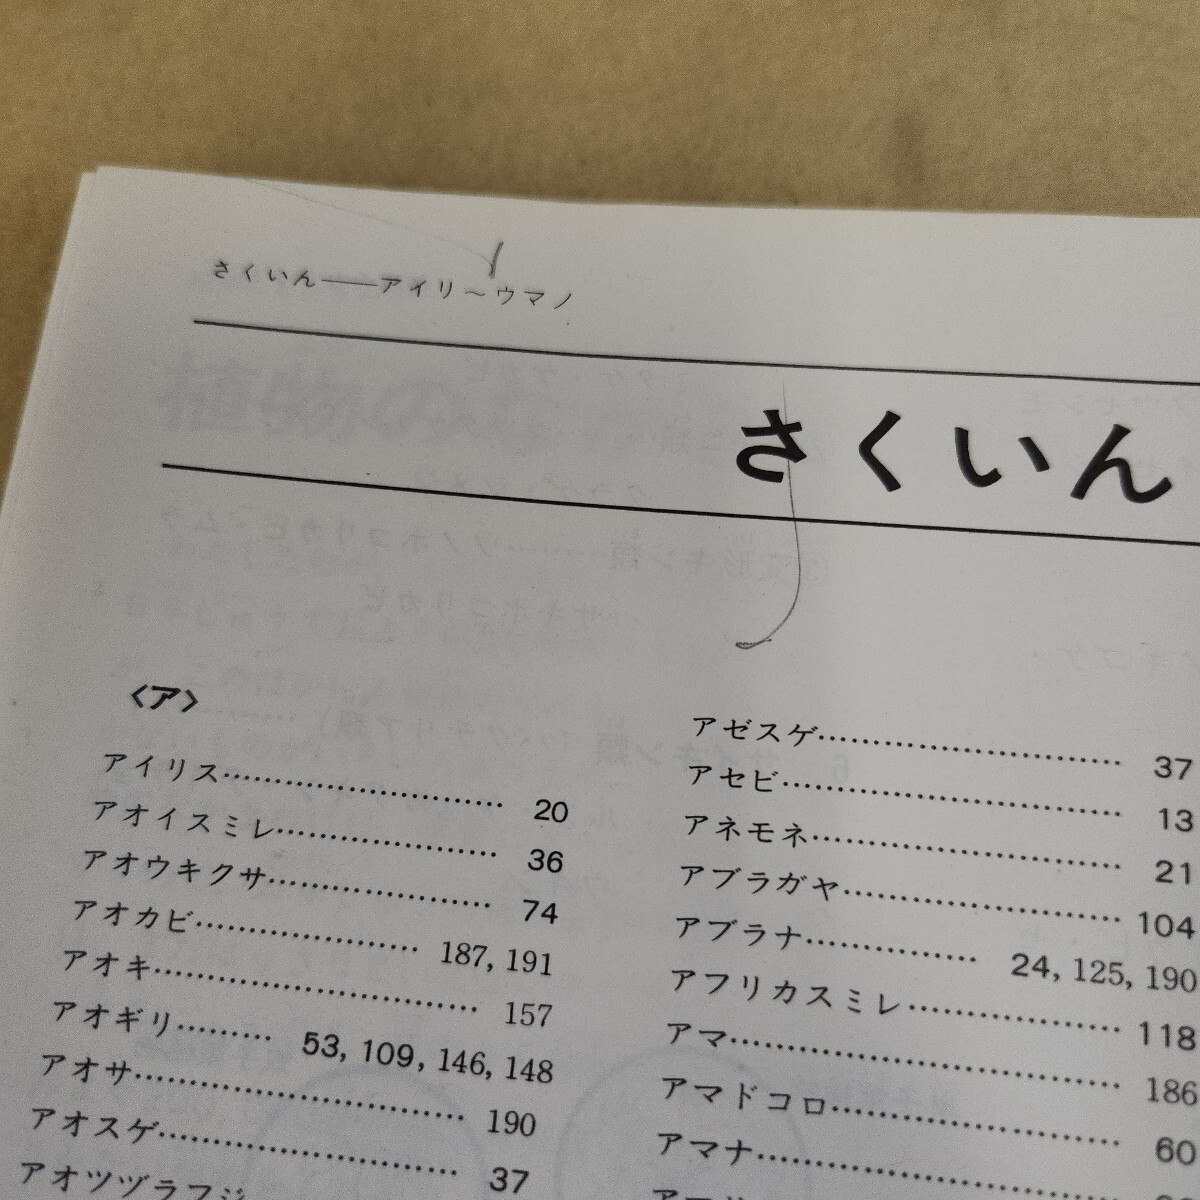 さくいん――アイリ～ウマノ
さくいん
〈ア〉
アイリス……………………………20
アオイスミレ………………………36
アオウキクサ………………………74
アオカビ……………………187, 191
アオキ………………………………157
アオギリ………53, 109, 146, 148
アオサ………………………………190
アオスゲ……………………………37
アオツヅラフジ
アゼスゲ……………………………37
アセビ………………………………13
アネモネ……………………………21
アブラガヤ…………………………104
アブラナ………………24, 125, 190
アフリカスミレ……………………118
アマ…………………………………186
アマドコロ…………………………60
アマナ………………………………